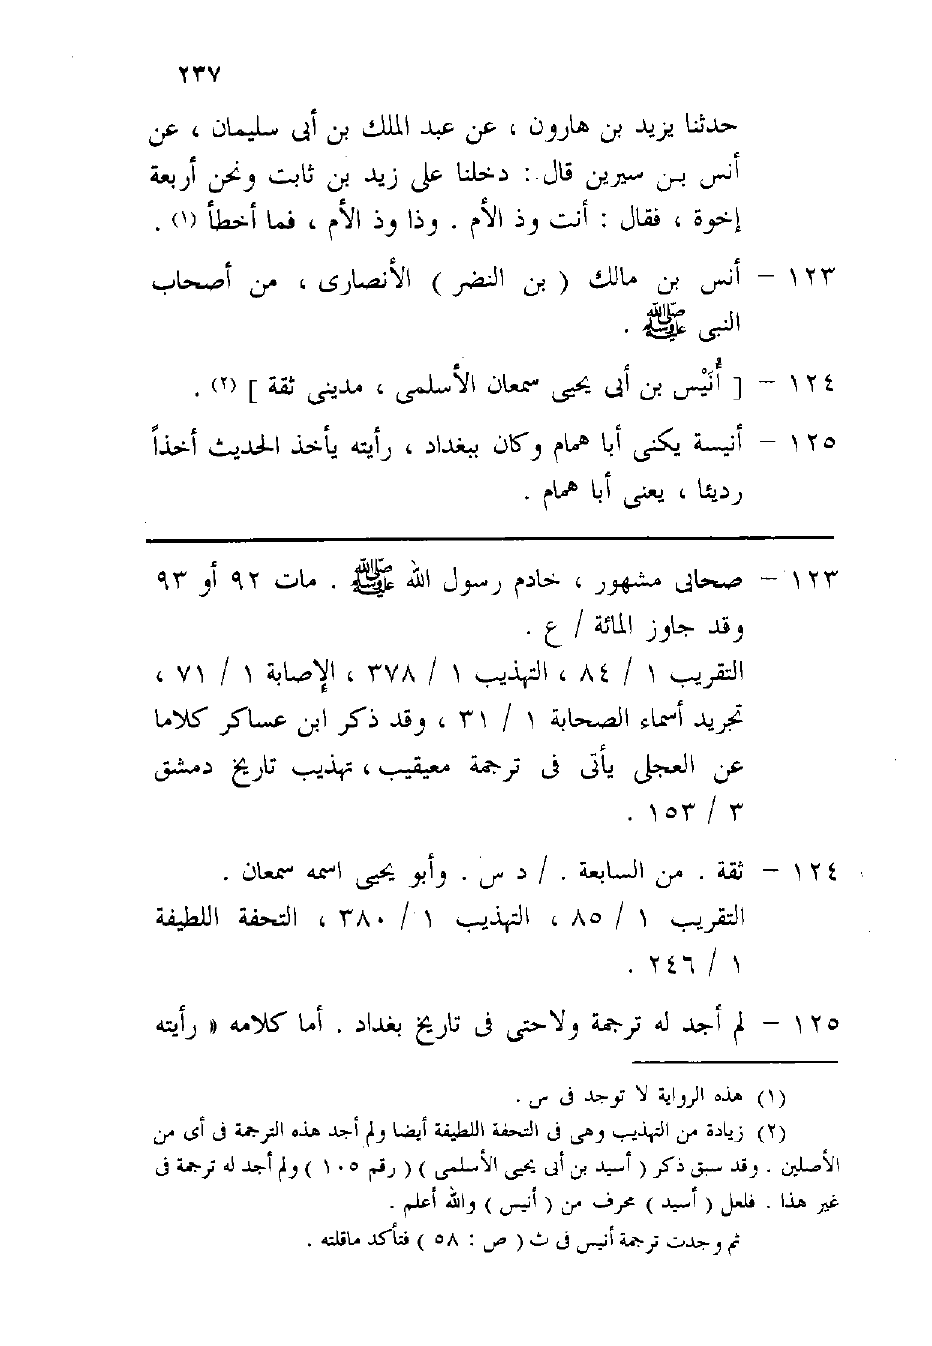 ٢٣٧
حدثنا يزيد بن هارون ، عن عبد الملك بن أبى سليمان ، عن
أنس بـن سيرين قال : دخلنا على زيد بن ثابت ونحن أربعة
إخوة ، فقال : أنت وذ الأم . وذا وذ الأم ، فما أخطأ (١) .
١٢٣ – أنس بن مالك ( بن النضر ) الأنصارى ، من أصحاب
النبى ﷺ .
١٢٤ – [ أُنَيْس بن أبى يحيى سمعان الأسلمى ، مدينى ثقة ] (٢) .
١٢٥ – أنيسة يكنى أبا همام وكان ببغداد ، رأيته يأخذ الحديث أخذاً
رديئا ، يعنى أبا همام .
١٢٣ – صحابى مشهور ، خادم رسول الله ﷺ . مات ٩٢ أو ٩٣
وقد جاوز المائة / ع .
التقريب ١ / ٨٤ ، التهذيب ١ / ٣٧٨ ، الإصابة ١ / ٧١ ،
تجريد أسماء الصحابة ١ / ٣١ ، وقد ذكر ابن عساكر كلاما
عن العجلى يأتى فى ترجمة معيقيب ، تهذيب تاريخ دمشق
٣ / ١٥٣ .
١٢٤ – ثقة . من السابعة . / د س . وأبو يحيى اسمه سمعان .
التقريب ١ / ٨٥ ، التهذيب ١ / ٣٨٠ ، التحفة اللطيفة
١ / ٢٤٦ .
١٢٥ – لم أجد له ترجمة ولاحتى فى تاريخ بغداد . أما كلامه « رأيته
(١) هذه الرواية لا توجد فى س .
(٢) زيادة من التهذيب وهى فى التحفة اللطيفة أيضا ولم أجد هذه الترجمة فى أى من
الأصلين . وقد سبق ذكر ( أسيد بن أبى يحيى الأسلمى ) ( رقم ١٠٥ ) ولم أجد له ترجمة فى
غير هذا . فلعل ( أسيد ) محرف من ( أنيس ) والله أعلم .
ثم وجدت ترجمة أنيس فى ث ( ص : ٥٨ ) فتأكد ماقلته .